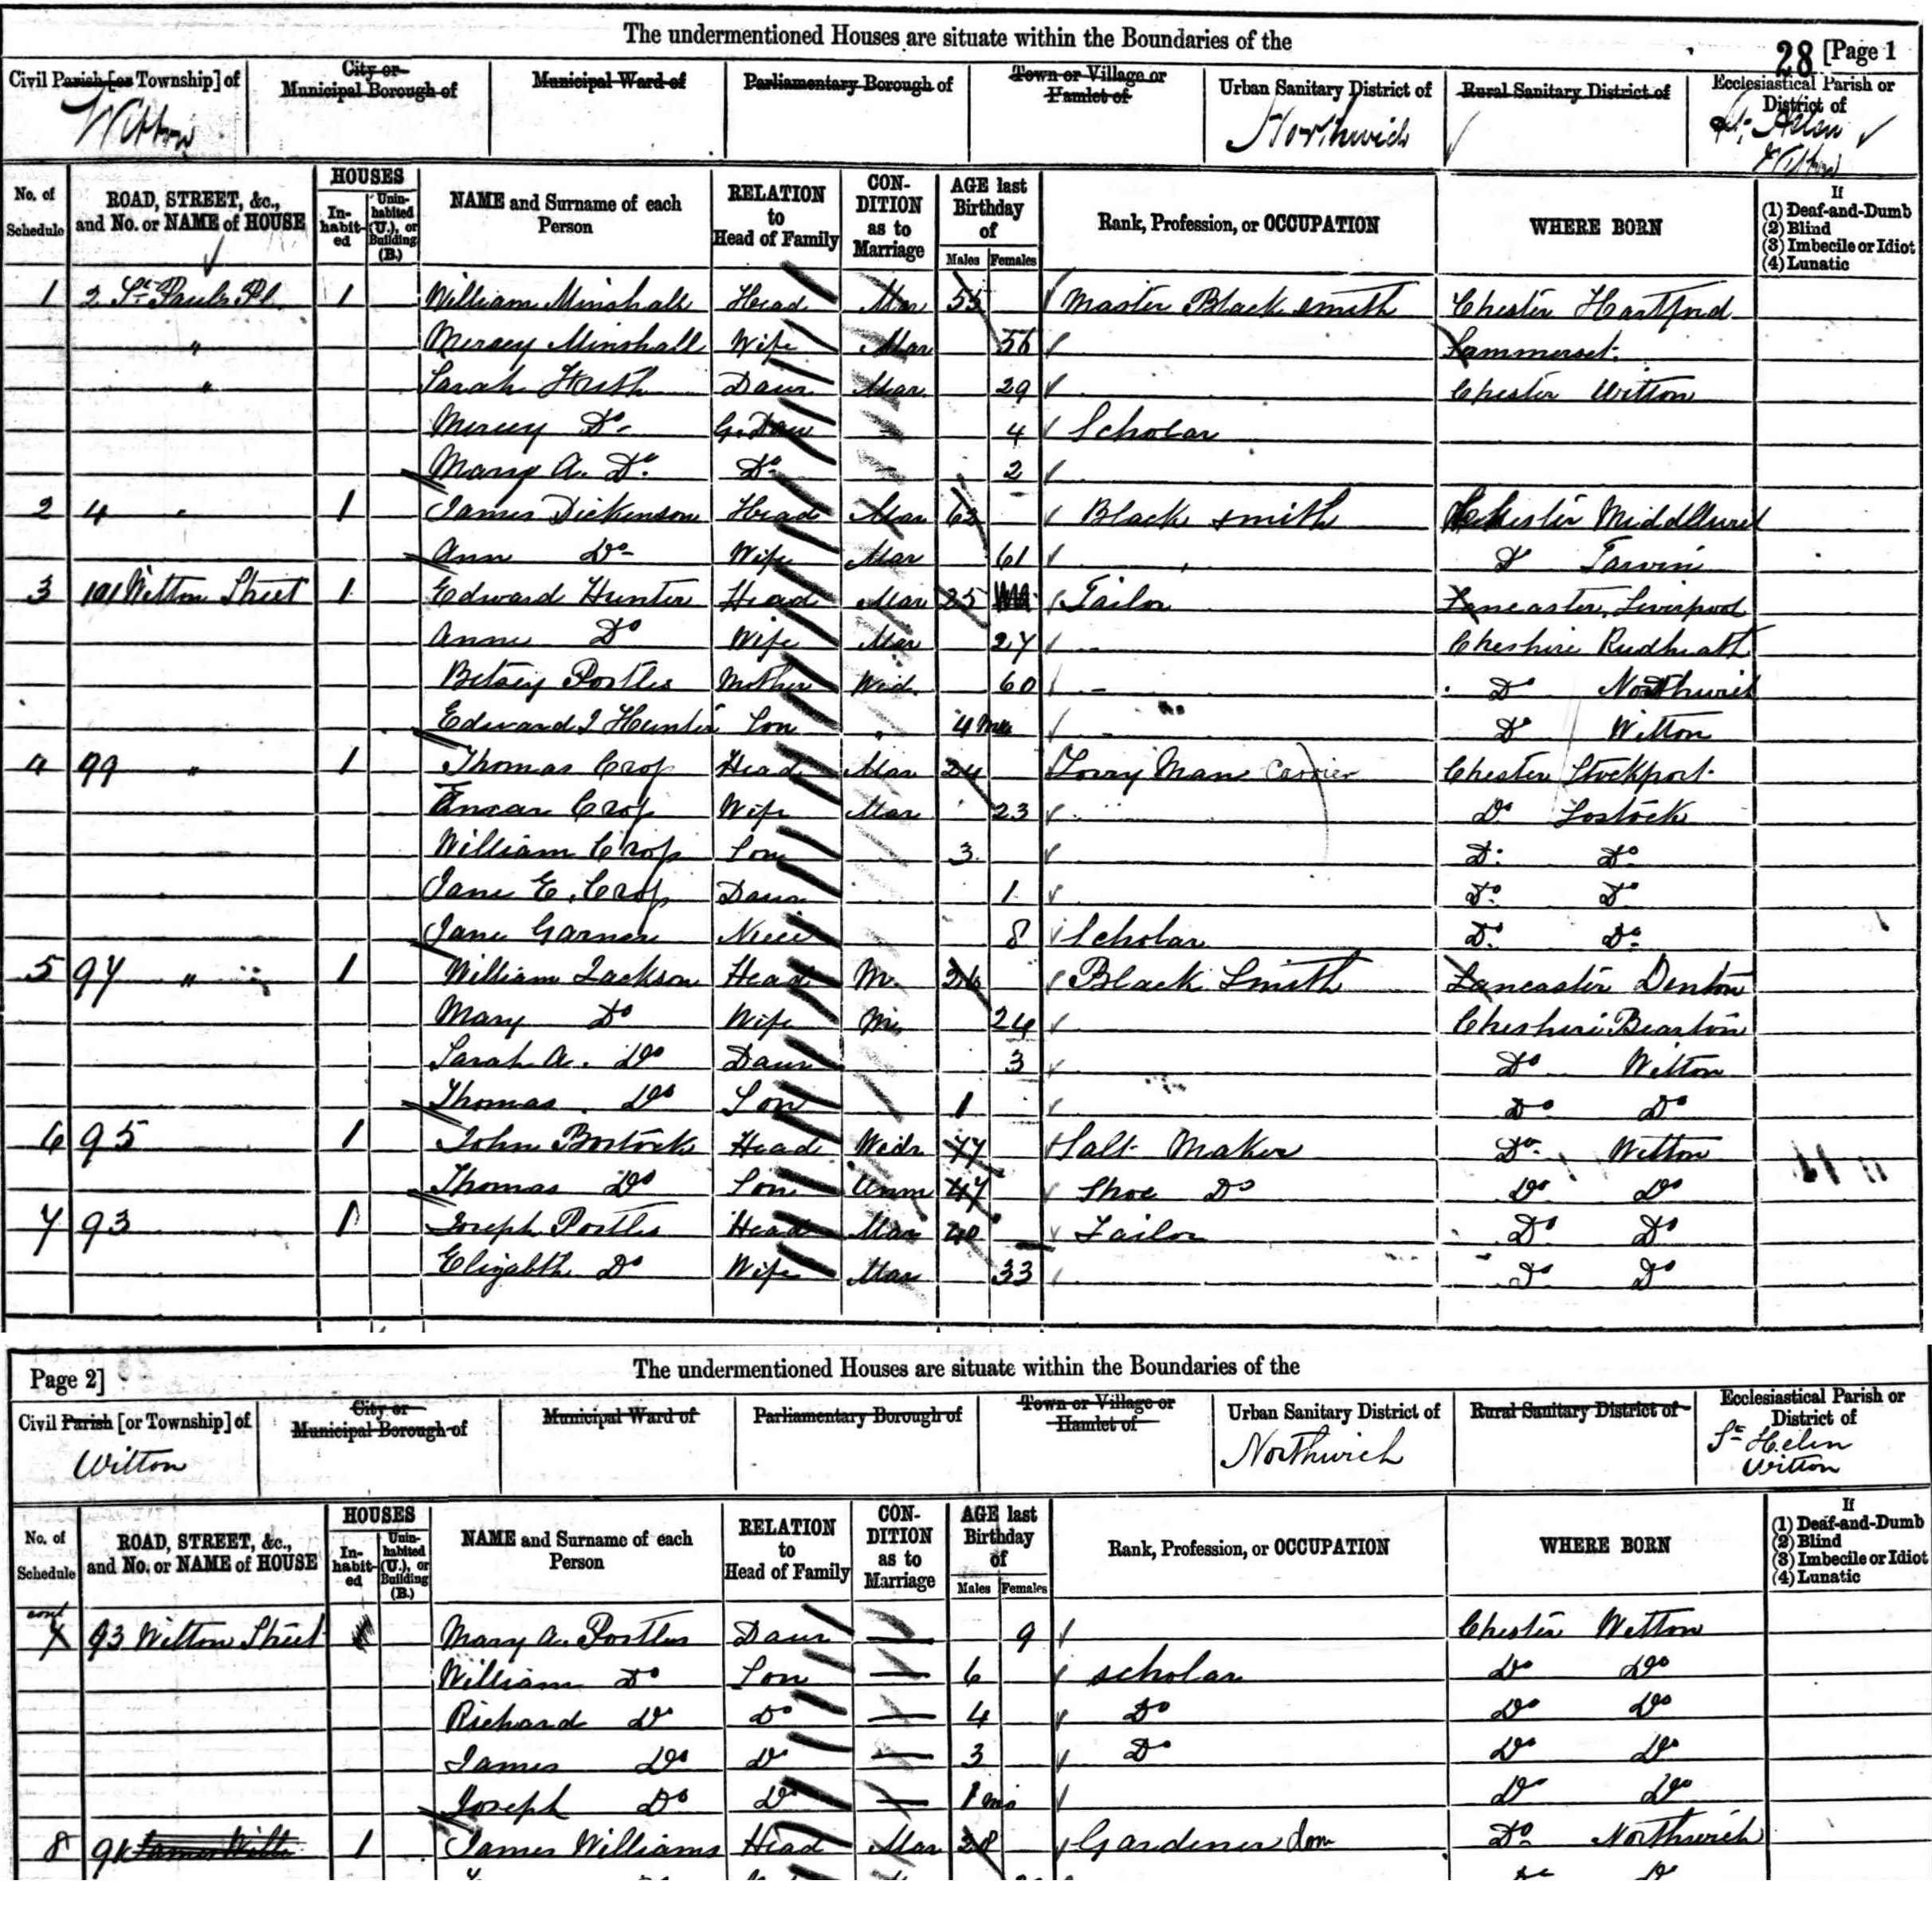 The undermentioned Houses are situate within the Boundaries of the
28 [Page 1
Civil Parish [or Township] of
City or Municipal Borough of
Municipal Ward of
Parliamentary Borough of
Town or Village or Hamlet of
Urban Sanitary District of
Rural Sanitary District of
Ecclesiastical Parish or District of
Witton
Northwich
Witton
No. of Schedule
ROAD, STREET, &c., and No. or NAME of HOUSE
HOUSES
In-habit-ed
Unin-habited (U.), or Building (B.)
NAME and Surname of each Person
RELATION to Head of Family
CON-DITION as to Marriage
AGE last Birthday of
Males Females
Rank, Profession, or OCCUPATION
WHERE BORN
If
(1) Deaf-and-Dumb
(2) Blind
(3) Imbecile or Idiot
(4) Lunatic
1 2 St Pauls Pl. 1 William Minshall Head Mar 55 Master Black smith Chester Hartford
" Mersey Minshall Wife Mar 56 Sammerset.
" Sarah Daur Mar 29 Chester Witton
Mercy Do G. Daur 4 Scholar
Mary A. Do Do 2
2 4 " 1 James Dickenson Head Mar 62 Black smith Chester
Ann Do Wife Mar 61 Do Tarvin
3 101 Witton Street 1 Edward Hunter Head Mar 25 Tailor Lancaster, Liverpool
Anne Do Wife Mar 27 Cheshire Rudheath
Betsey Postles Mother Wid. 60 Do Northwich
Edward J Hunter Son 4 mo Do Witton
4 99 " 1 Thomas Crop Head Mar 24 Lorry Man Carrier Chester Stockport.
Crop Wife Mar 23 Do Lostock
William Crop Son 3 Do Do
Jane E. Crop Daur 1 Do Do
Jane Garner Niece 8 Scholar Do Do
5 97 " 1 William Jackson Head M. 26 Black Smith Lancaster Denton
Mary Do Wife M 24 Cheshire
Sarah A. Do Daur 3 Do Witton
Thomas Do Son 1 Do Do
6 95 1 John Bostock Head Widr 77 Salt Maker Do Witton
Thomas Do Son Unm 47 Shoe Do Do Do
7 93 1 Joseph Postles Head Mar 40 Tailor Do Do
Elizabth Do Wife Mar 33 Do Do
Page 2]
The undermentioned Houses are situate within the Boundaries of the
Civil Parish [or Township] of
City or Municipal Borough of
Municipal Ward of
Parliamentary Borough of
Town or Village or Hamlet of
Urban Sanitary District of
Rural Sanitary District of
Ecclesiastical Parish or District of
Witton
Northwich
St Helen
Witton
No. of Schedule
ROAD, STREET, &c., and No. or NAME of HOUSE
HOUSES
In-habit-ed
Unin-habited (U.), or Building (B.)
NAME and Surname of each Person
RELATION to Head of Family
CON-DITION as to Marriage
AGE last Birthday of
Males Females
Rank, Profession, or OCCUPATION
WHERE BORN
If
(1) Deaf-and-Dumb
(2) Blind
(3) Imbecile or Idiot
(4) Lunatic
cont
7 93 Witton Street Mary A. Postles Daur 9 Chester Witton
William Do Son 6 scholar Do Do
Richard Do Do 4 Do Do Do
James Do Do 3 Do Do Do
Joseph Do Do 1 mo Do Do
8 91 1 James Williams Head Mar 28 Gardener dom Do Northwich